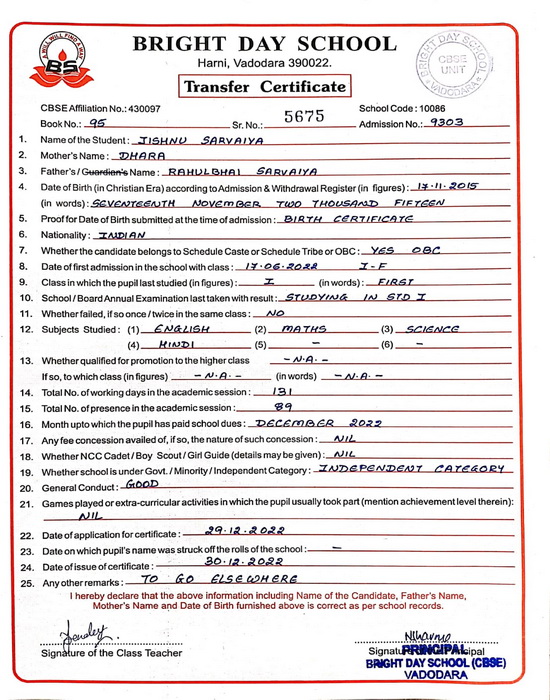 A WILL WILL FIND A WAY
BS
BRIGHT DAY SCHOOL
Harni, Vadodara 390022.
BRIGHT DAY SCHOOL
CBSE
UNIT
VADODARA
Transfer Certificate
CBSE Affiliation No.: 430097 School Code : 10086
Book No.: 95 Sr. No.: 5675 Admission No.: 9303
1. Name of the Student : JISHNU SARVAIYA
2. Mother's Name : DHARA
3. Father's / Guardian's Name : RAHULBHAI SARVAIYA
4. Date of Birth (in Christian Era) according to Admission & Withdrawal Register (in figures) : 17.11.2015
(in words) : SEVENTEENTH NOVEMBER TWO THOUSAND FIFTEEN
5. Proof for Date of Birth submitted at the time of admission : BIRTH CERTIFICATE
6. Nationality : INDIAN
7. Whether the candidate belongs to Schedule Caste or Schedule Tribe or OBC : YES OBC
8. Date of first admission in the school with class : 17.06.2022 I-F
9. Class in which the pupil last studied (in figures) : I (in words) : FIRST
10. School / Board Annual Examination last taken with result : STUDYING IN STD I
11. Whether failed, if so once / twice in the same class : NO
12. Subjects Studied : (1) ENGLISH (2) MATHS (3) SCIENCE
(4) HINDI (5) – (6) –
13. Whether qualified for promotion to the higher class – N.A. –
If so, to which class (in figures) – N.A. – (in words) – N.A. –
14. Total No. of working days in the academic session : 131
15. Total No. of presence in the academic session : 89
16. Month upto which the pupil has paid school dues : DECEMBER 2022
17. Any fee concession availed of, if so, the nature of such concession : NIL
18. Whether NCC Cadet / Boy Scout / Girl Guide (details may be given) : NIL
19. Whether school is under Govt. / Minority / Independent Category : INDEPENDENT CATEGORY
20. General Conduct : GOOD
21. Games played or extra-curricular activities in which the pupil usually took part (mention achievement level therein):
NIL
22. Date of application for certificate : 29.12.2022
23. Date on which pupil's name was struck off the rolls of the school : –
24. Date of issue of certificate : 30.12.2022
25. Any other remarks : TO GO ELSEWHERE
I hereby declare that the above information including Name of the Candidate, Father's Name,
Mother's Name and Date of Birth furnished above is correct as per school records.
Signature of the Class Teacher
PRINCIPAL
BRIGHT DAY SCHOOL (CBSE)
VADODARA